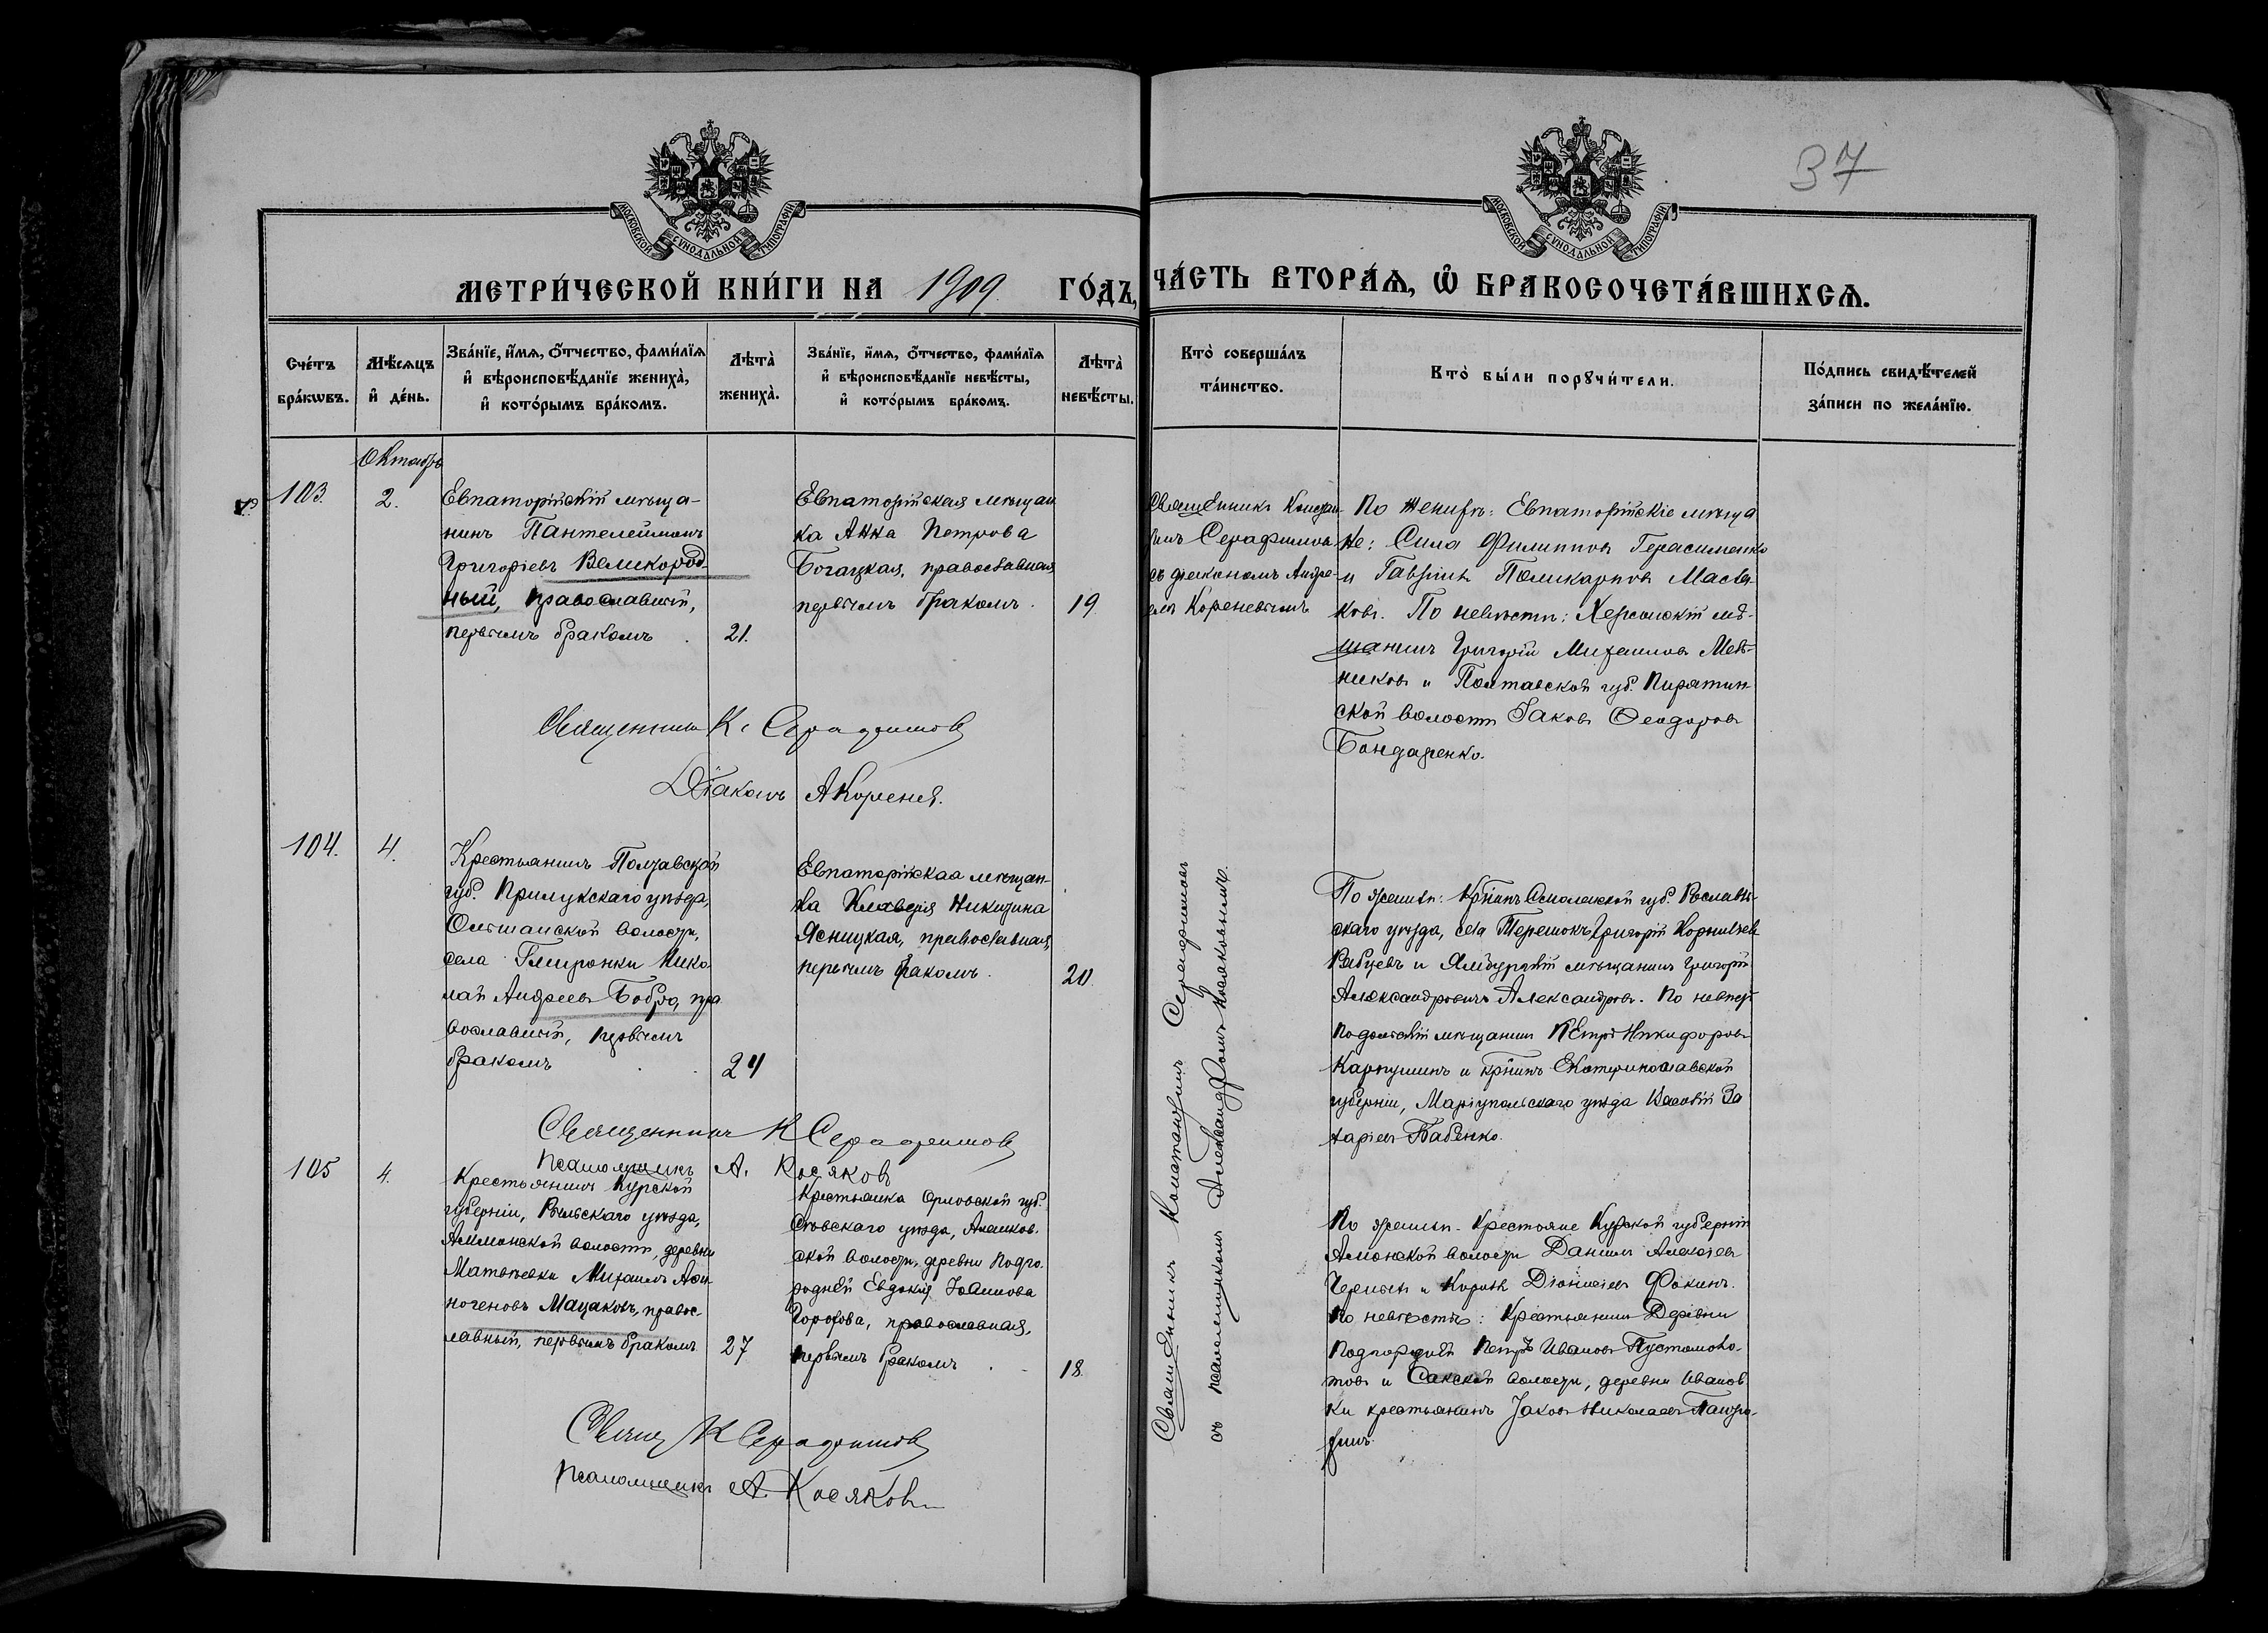 37
МОСКОВСКОЙ СѴНОДАЛЬНОЙ ТИПОГРАФІИ
МОСКОВСКОЙ СѴНОДАЛЬНОЙ ТИПОГРАФІИ
МЕТРИ́ЧЕСКОЙ КНИ́ГИ НА 1909 ГО́ДЪ,
ЧА́СТЬ ВТОРА́Ѧ, Ѽ БРАКОСОЧЕТА́ВШИХСѦ.
Сче́тъ
бра́кѡвъ.
Мѣ́сѧцъ
и҆ де́нь.
Зва́нїе, и҆́мѧ, о҆́тчество, фамѝлїѧ
и҆ вѣроисповѣ́данїе жениха̀,
и҆ кото́рымъ бра́комъ.
Лѣта̀
жениха̀.
Зва́нїе, и҆́мѧ, о҆́тчество, фамѝлїѧ
и҆ вѣроисповѣ́данїе невѣ́сты,
и҆ кото́рымъ бра́комъ.
Лѣта̀
невѣ́сты.
Кто̀ соверша́лъ
та́инство.
Кто̀ бы́ли порꙋчи́тели.
По́дпись свидѣ́телей
за́писи по жела́нїю.
Октябрь
103.
2.
Евпаторійскій мѣща-
нинъ Пантелеймонъ
Григоріевъ Великород-
ный, православный,
первымъ бракомъ
21.
Евпаторійская мѣщан
ка Анна Петрова
Богацкая, православная
первымъ бракомъ.
19
Священникъ Констан-
тинъ Серафимовъ
съ діакономъ Андре-
емъ Кореневымъ
По женихѣ: Евпаторійскіе мѣща
не: Сила Филипповъ Герасименко
и Гавріилъ Поликарповъ Масля
ковъ. По невѣстѣ: Херсонскій мѣ-
щанинъ Григорій Михаиловъ Мѣл-
никовъ и Полтавской губ. Пирятин-
ской волости Іаковъ Ѳеодоровъ
Бондаренко.
Священникъ К. Серафимовъ
Діаконъ А Кореневъ.
104.
4.
Крестьянинъ Полтавской
губ. Прилукскаго уѣзда,
Ольшанской волости,
села Гмирянки Нико-
лай Андреевъ Бобро, пра
вославный, первымъ
бракомъ
24
Евпаторійская мѣщан-
ка Клавдія Никитина
Ясницкая, православная,
первымъ бракомъ.
20
Священникъ Константинъ Серафимовъ
съ псаломщикомъ Александромъ Косяковымъ.
По женихѣ: Кр͠нинъ Смоленской губ. Рославль-
скаго уѣзда, села Терешокъ Григорій Корнильевъ
Рабцевъ и Ямбургскій мѣщанинъ Григорій
Александровичъ Александровъ. По невѣстѣ
Подольскій мѣщанинъ Петръ Никифоровъ
Карпушинъ и кр͠нинъ Екатеринославской
губерніи, Маріупольскаго уѣзда Василій За
харіевъ Бабенко.
Священникъ К Серафимовъ
Псаломщикъ А. Косяковъ
105
4.
Крестьянинъ Курской
губерніи, Рыльскаго уѣзда,
Аммонской волости, деревни
Матвѣевки Михаилъ Аѳи
ногеновъ Мацаковъ, правос-
лавный, первымъ бракомъ
27
Крестьянка Орловской губ.
Сѣвскаго уѣзда,
ской волости, деревни Подго
родней Евдокія Іоаннова
православная,
первымъ бракомъ
18.
По женихѣ - Крестьяне Курской губерніи
Амонской волости Даніилъ Алексѣевъ
и Кириллъ Діонисіевъ Фокинъ.
По невѣстѣ: Крестьянинъ Деревни
Подгородней Петръ Ивановъ Пустомоло-
товъ и Сакской волости, деревни Иванов
ки крестьянинъ Іаковъ Николаевъ
Свящ К Серафимовъ
Псаломщикъ А. Косяковъ